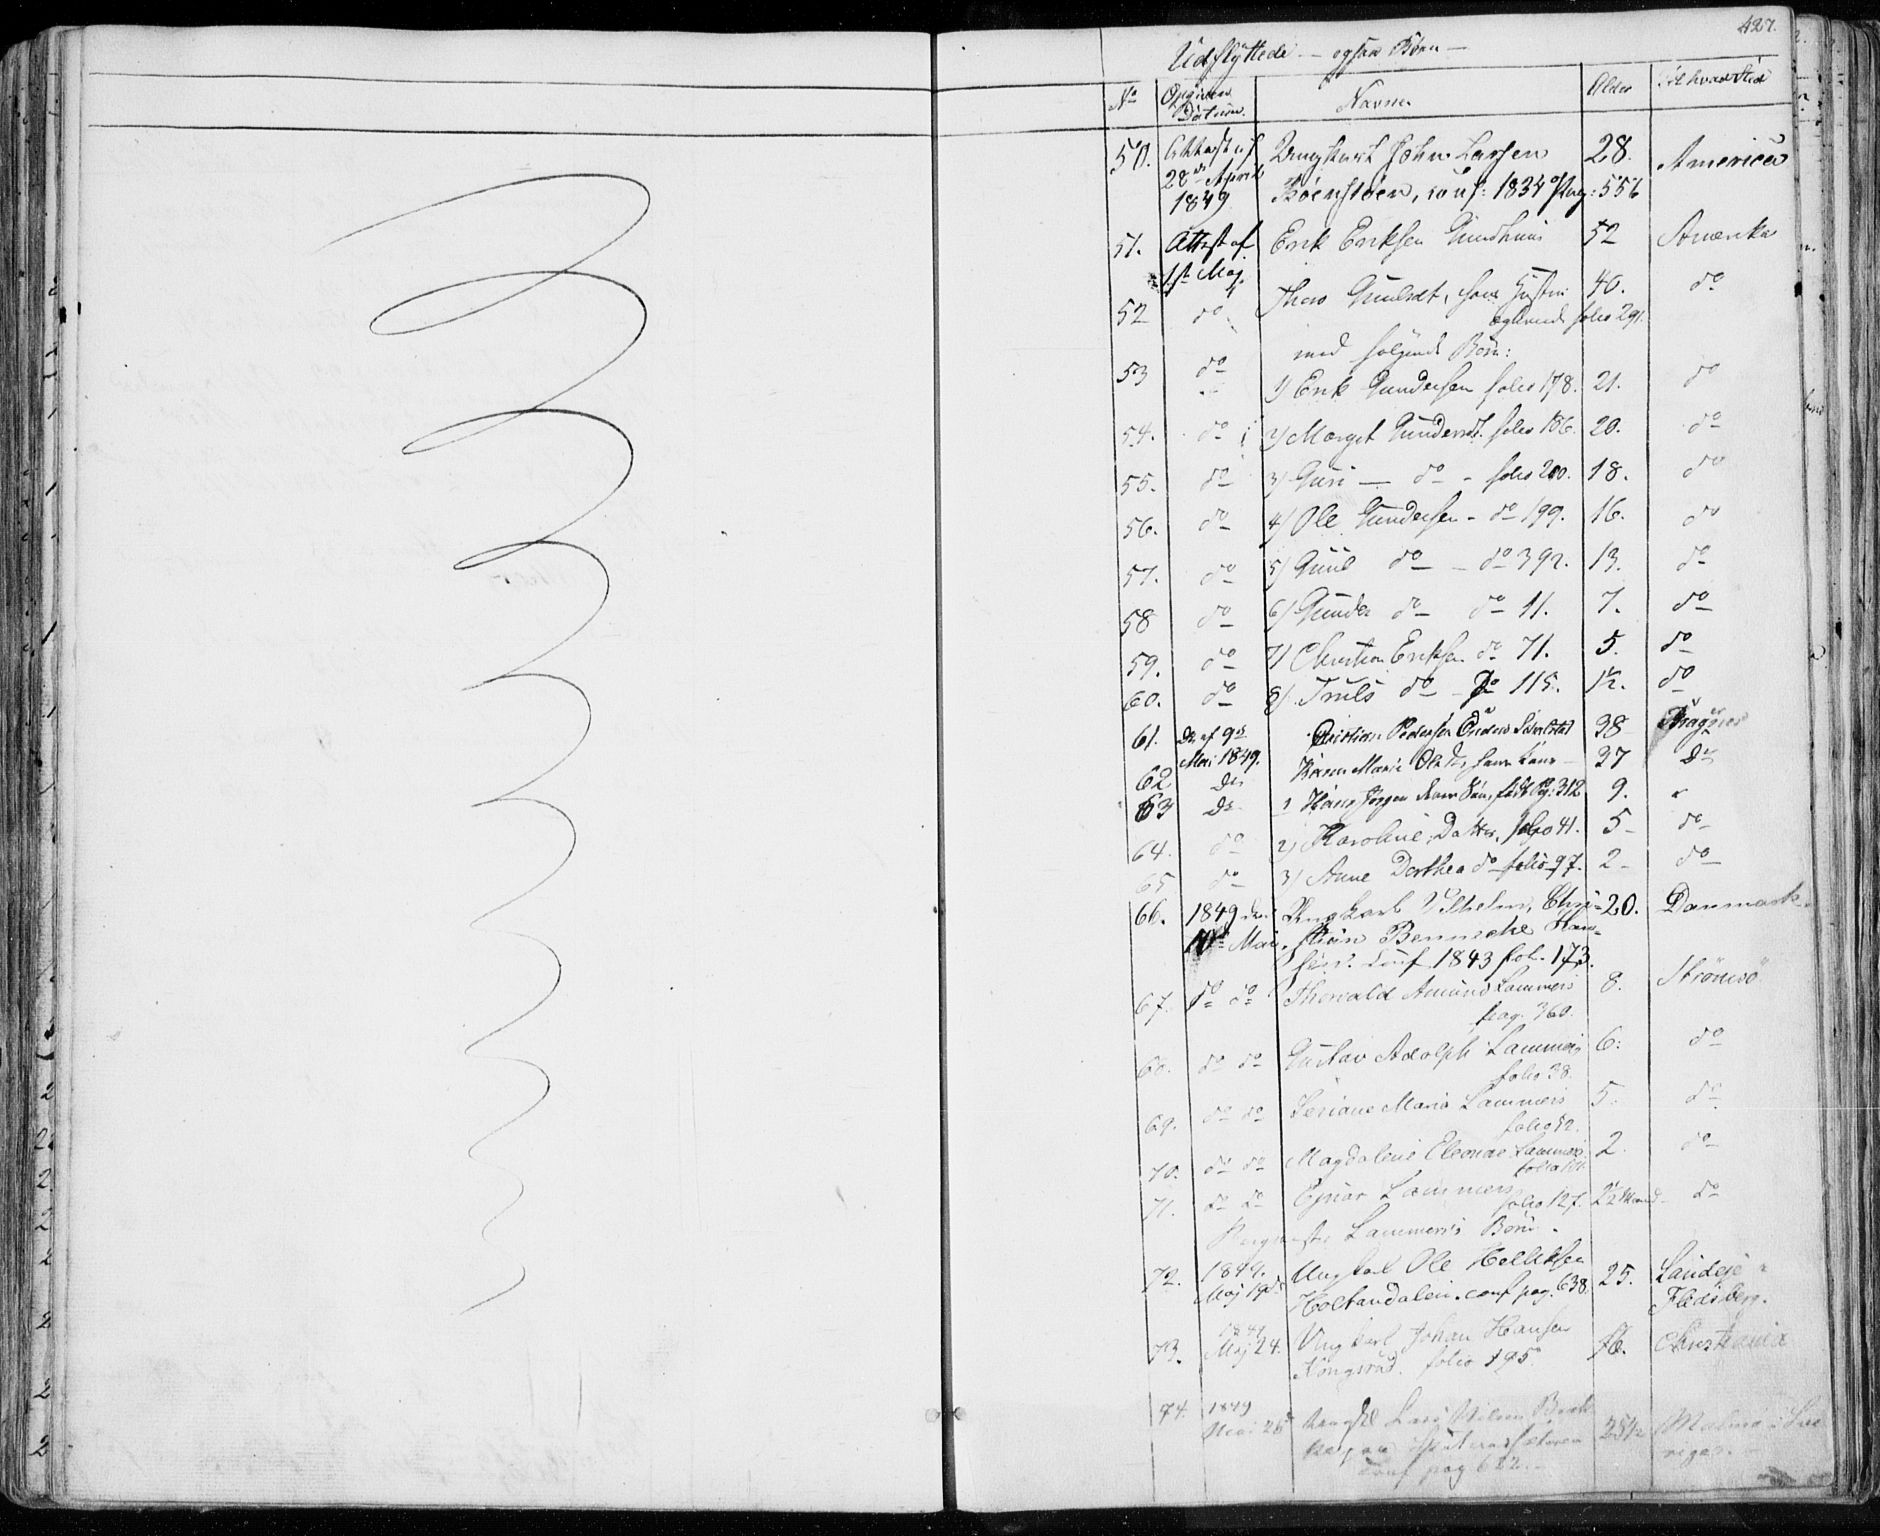 427.
Udflyttede — ogsaa Børn —
No Opgivens Datum. Navne Alder Til hvad Sted
50. Attest af 28de April 1849 Ungkarl John Larsen 28. America
conf: 1834 Pag: 556
51. Attest af 1ste Maj Erik Eriksen 52 Amerika
52 do hans Hustru 40. do
folio 291.
med følgende Børn:
53 do 1) Erik Gundersen folio 178. 21. do
54. do 2) Margit Gundersdt. folio 186. 20. do
55. do 3) Guri — do - folio 200. 18. do
56. do 4) Ole Gundersen - do 199. 16. do
57. do 5) do — do 392. 13. do
58 do 6) Gunder do — do 11. 7. do
59. do 7) Christian Eriksen do 71. 5. do
60. do 8) Truls do - Do 115. 1½. do
61. Do af 9de Mai 1849. Christian Pedersen 38 Bragnes
62 Do Karen Marie hans Kone — 37 Do
63 Do 1 Hans Jørgen deres Søn, født Pag: 312 9. "
64. do 2) Karoline, Datter, folio 41. 5 - do
65 do 3) Anne Dorthea do folio 97. 2 - do
66. 1849 den 10de Mai Ungkarl Vilhelm, Chri- 20. Danmark.
stian Benneche Han-
sen. conf. 1843 fol. 173.
67. do do Thorvald Amund Lammers 8. Strömsö
pag. 360.
68. do do Gustav Adolph Lammers 6: do
folio 38.
69. do do Marie Lammers 5. do
folio 52.
70. do do Magdalene Eleonore Lammers 2. do
71. do do Ejnar Lammers folio 127. 2½ Maand do
Lammers's Børn.
72. 1849. Maj 19de Ungkarl Ole Helliksen 25. Landeje
conf pag. 638. Flesberg.
73. 1849 Maj 24. Ungkarl Johan Hansen 16. Christiania
Kongsrud. folio 195
74. 1849 Mai 25 Ungkl Lars 25½ Malmø i Sve-
conf pag 622. — rige.